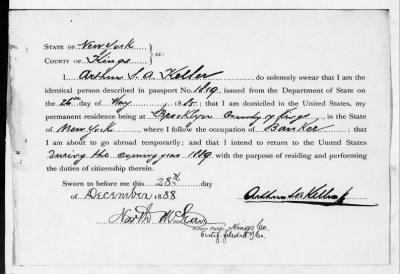 STATE OF New York
COUNTY OF Kings } ss:
I Arthur S. A. Keller do solemnly swear that I am the
identical person described in passport No. 1619, issued from the Department of State on
the 26th day of May, 1885; that I am domiciled in the United States, my
permanent residence being at Brooklyn County of Kings, in the State
of New York where I follow the occupation of Banker; that
I am about to go abroad temporarily; and that I intend to return to the United States
During the coming year 1889 with the purpose of residing and performing
the duties of citizenship therein.
Sworn to before me this 28th day
of December 1888
Arthur
North McLean
Notary Public, Kings Co.
Certif. filed in N.Y. Co.